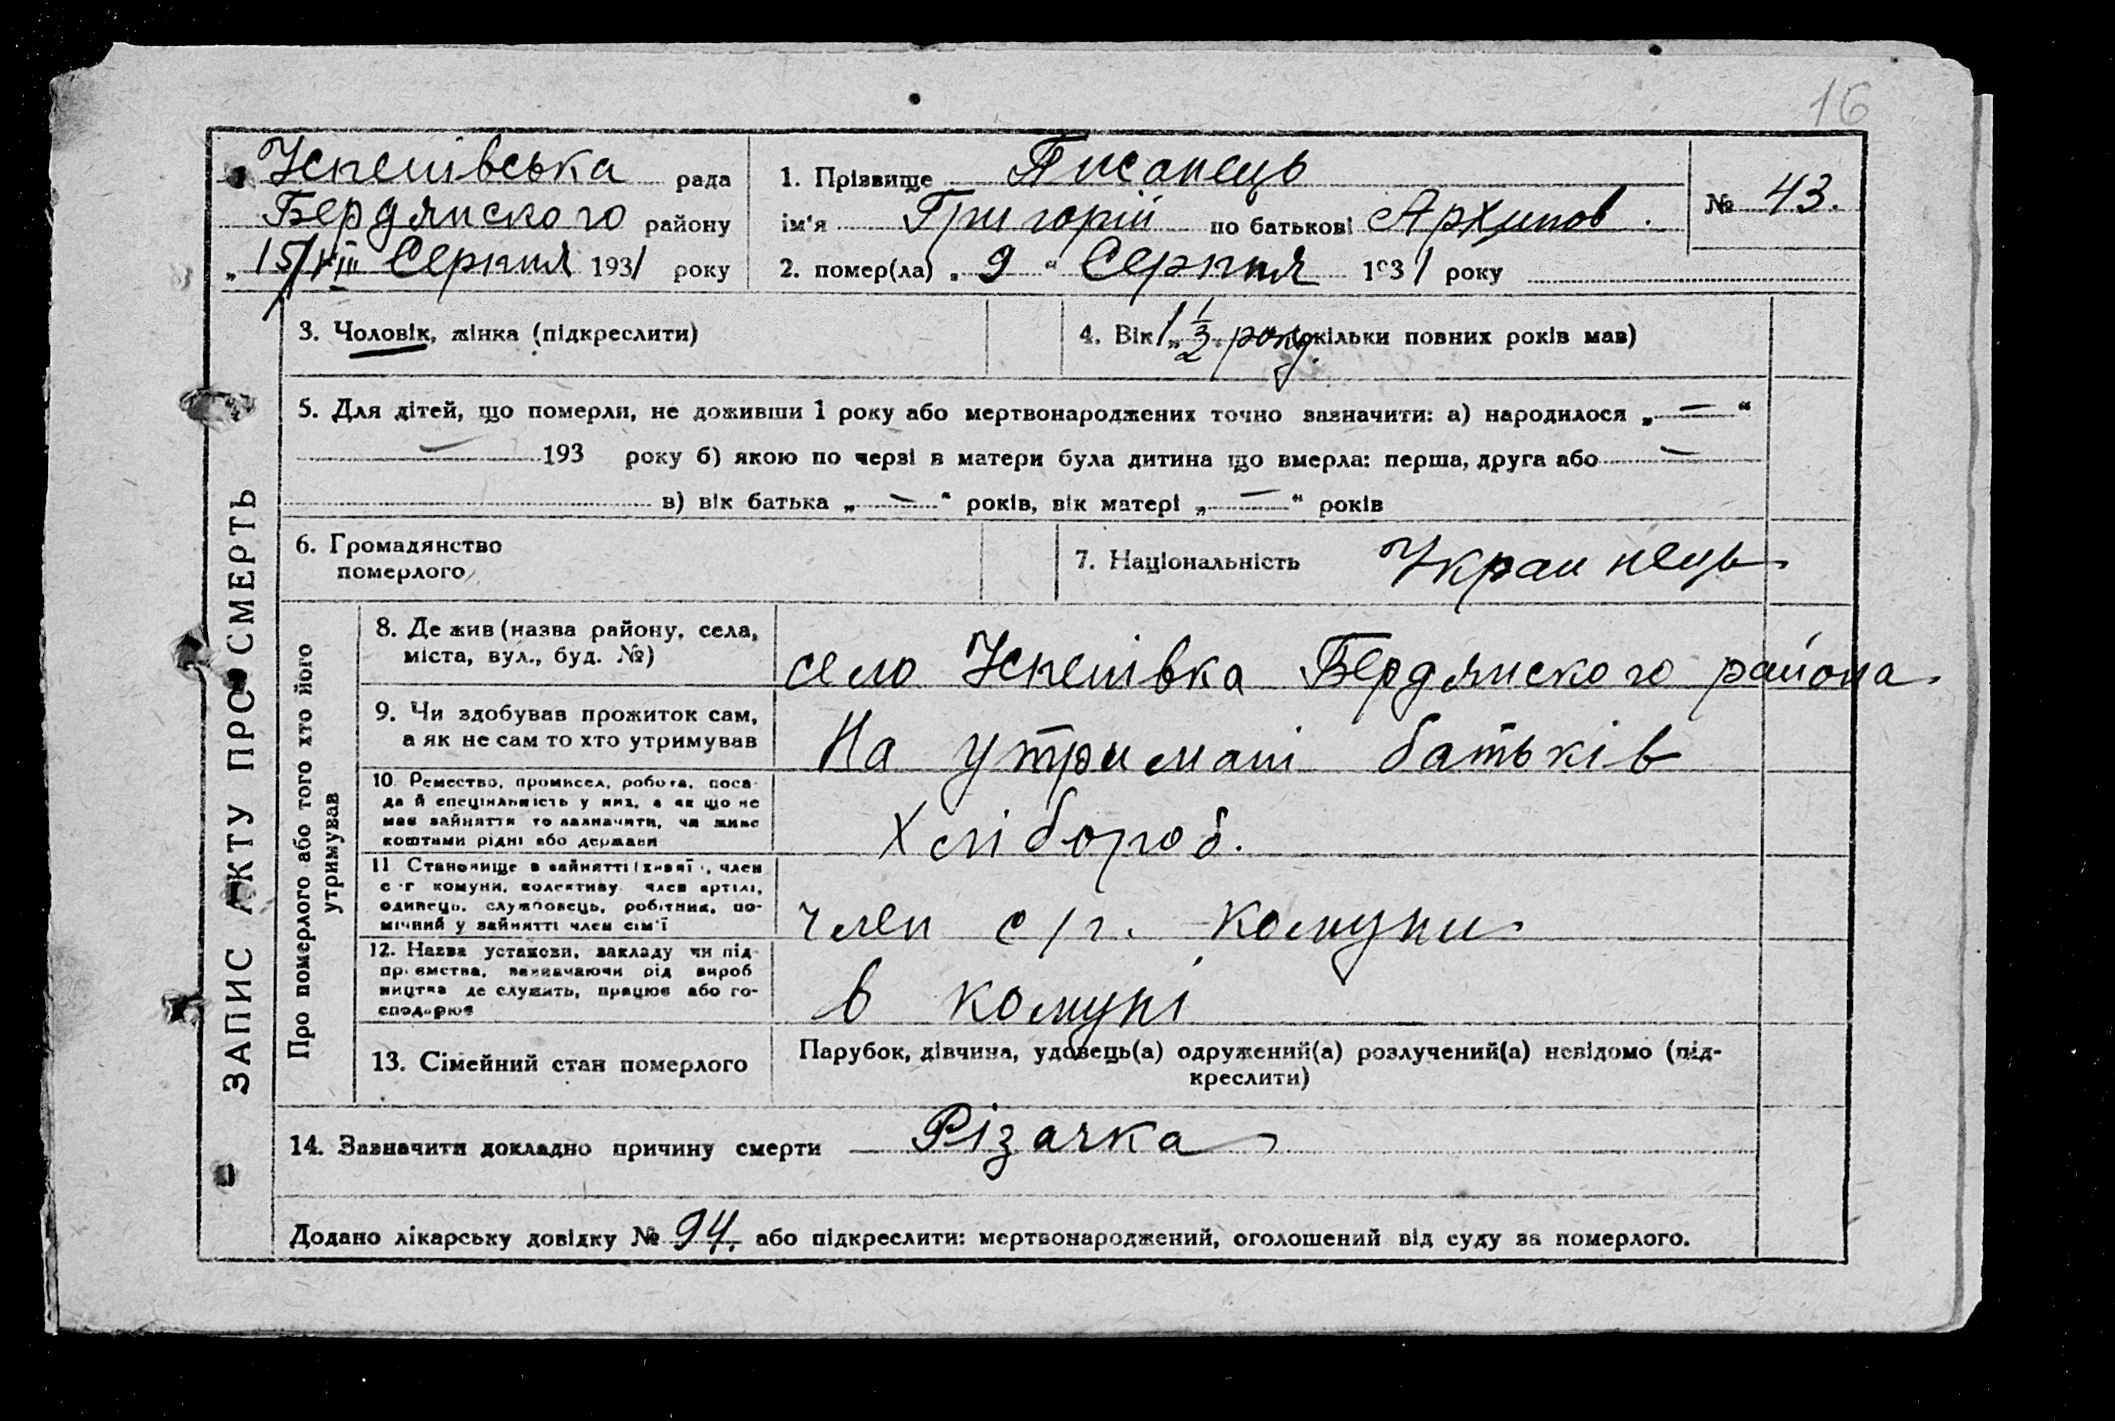 16
Успенівська рада
Бердянского району
„15/VIII Серпня 1931 року
1. Прізвище Писанець
ім'я Григорій по батькові Архипов.
2. помер(ла) „9“ Серпня 1931 року
№ 43.
3. Чоловік, жінка (підкреслити)
4. Вік „1 1/2 року. (скільки повних років мав)
5. Для дітей, що померли, не доживши 1 року або мертвонароджених точно зазначити: а) народилося „—“
— 193 року б) якою по черзі в матери була дитина що вмерла: перша, друга або —
в) вік батька „—“ років, вік матері „—“ років
6. Громадянство
померлого
7. Національність Украинець
ЗАПИС АКТУ ПРО СМЕРТЬ
Про померлого або того хто його
утримував
8. Де жив (назва району, села,
міста, вул., буд. №)
село Успенівка Бердянского района
9. Чи здобував прожиток сам,
а як не сам то хто утримував
На утримані батьків
10. Ремество, промисел, робота, поса-
да й спеціяльність у них, а як що не
мав зайняття то зазначити, чи живе
коштами рідні або держави
Хлібороб.
11. Становище в зайнятті (хазяї, член
с-г комуни, колективу, член артілі,
одинець, службовець, робітник, по-
мічний у зайнятті член сім'ї
член с/г. комуни
12. Назва установи, закладу чи під-
приємства, зазначаючи рід вироб
ництва де служить, працює або го-
сподарює
в комуні
13. Сімейний стан померлого
Парубок, дівчина, удовець(а) одружений(а) розлучений(а) невідомо (під-
креслити)
14. Зазначити докладно причину смерти Різачка
Додано лікарську довідку № 94. або підкреслити: мертвонароджений, оголошений від суду за померлого.